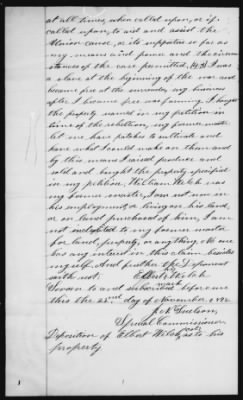 at all times, when called upon, or if
called upon, to aid and assist the
Union cause, or its supporters so far as
my means and power and the circum
stances of the case permitted. (43) I was
a slave at the beginning of the war and
became free at the surrender, my business
after I became free was farming. I bought
the property named in my petition in
time of the rebellion, my former master
let me have patches to cultivate and
have what I could make on them and
by this means I raised produce and
sold and bought the property specified
in my petition. William Welch was
my former master, I am not now in
his employment, or living on his land,
or on land purchased of him, I am
not indebted to my former master
for land, property, or anything. No one
has any interest in this claim besides
myself. And further the Deponent
saith not. Elbert Welch
mark
Sworn to and subscribed before me
this the 22nd day of November 187
Special Commissioner
Deposition of Elbert Welch as to his
property